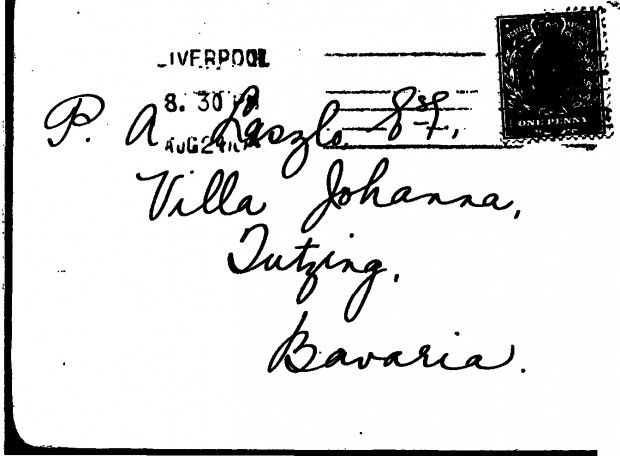 LIVERPOOL
8. 30
AUG 24
ONE PENNY
P. A. Laszlo Esq.,
Villa Johanna,
Tutzing,
Bavaria.